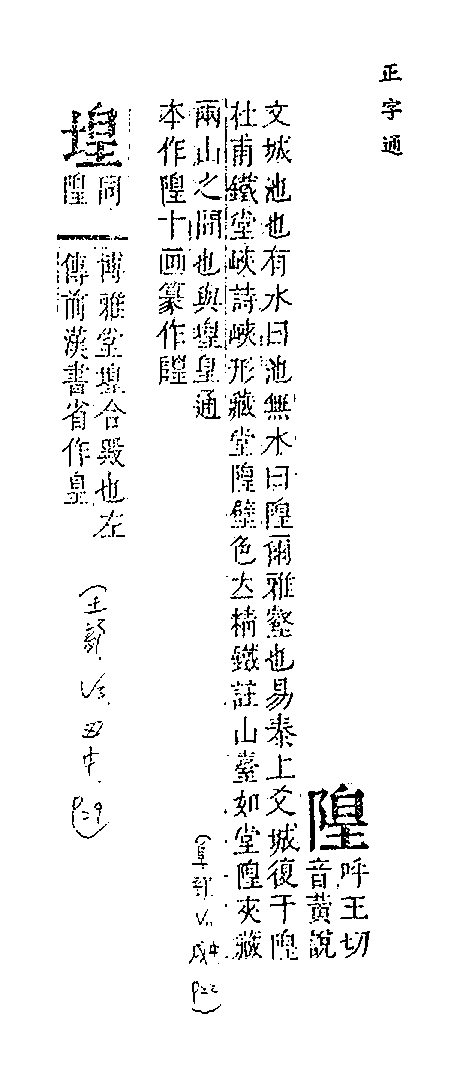 正字通
隍 呼王切
音黄說
文城池也有水曰池無水曰隍爾雅壑也易泰上爻城復于隍
杜甫鐵堂峽詩峽形藏堂隍壁色立精鐵註山臺如堂隍夾藏
兩山之間也與堭皇通
本作隍十画篆作隍
堭 同
隍
博雅堂堭合殿也左
傳前漢書省作皇